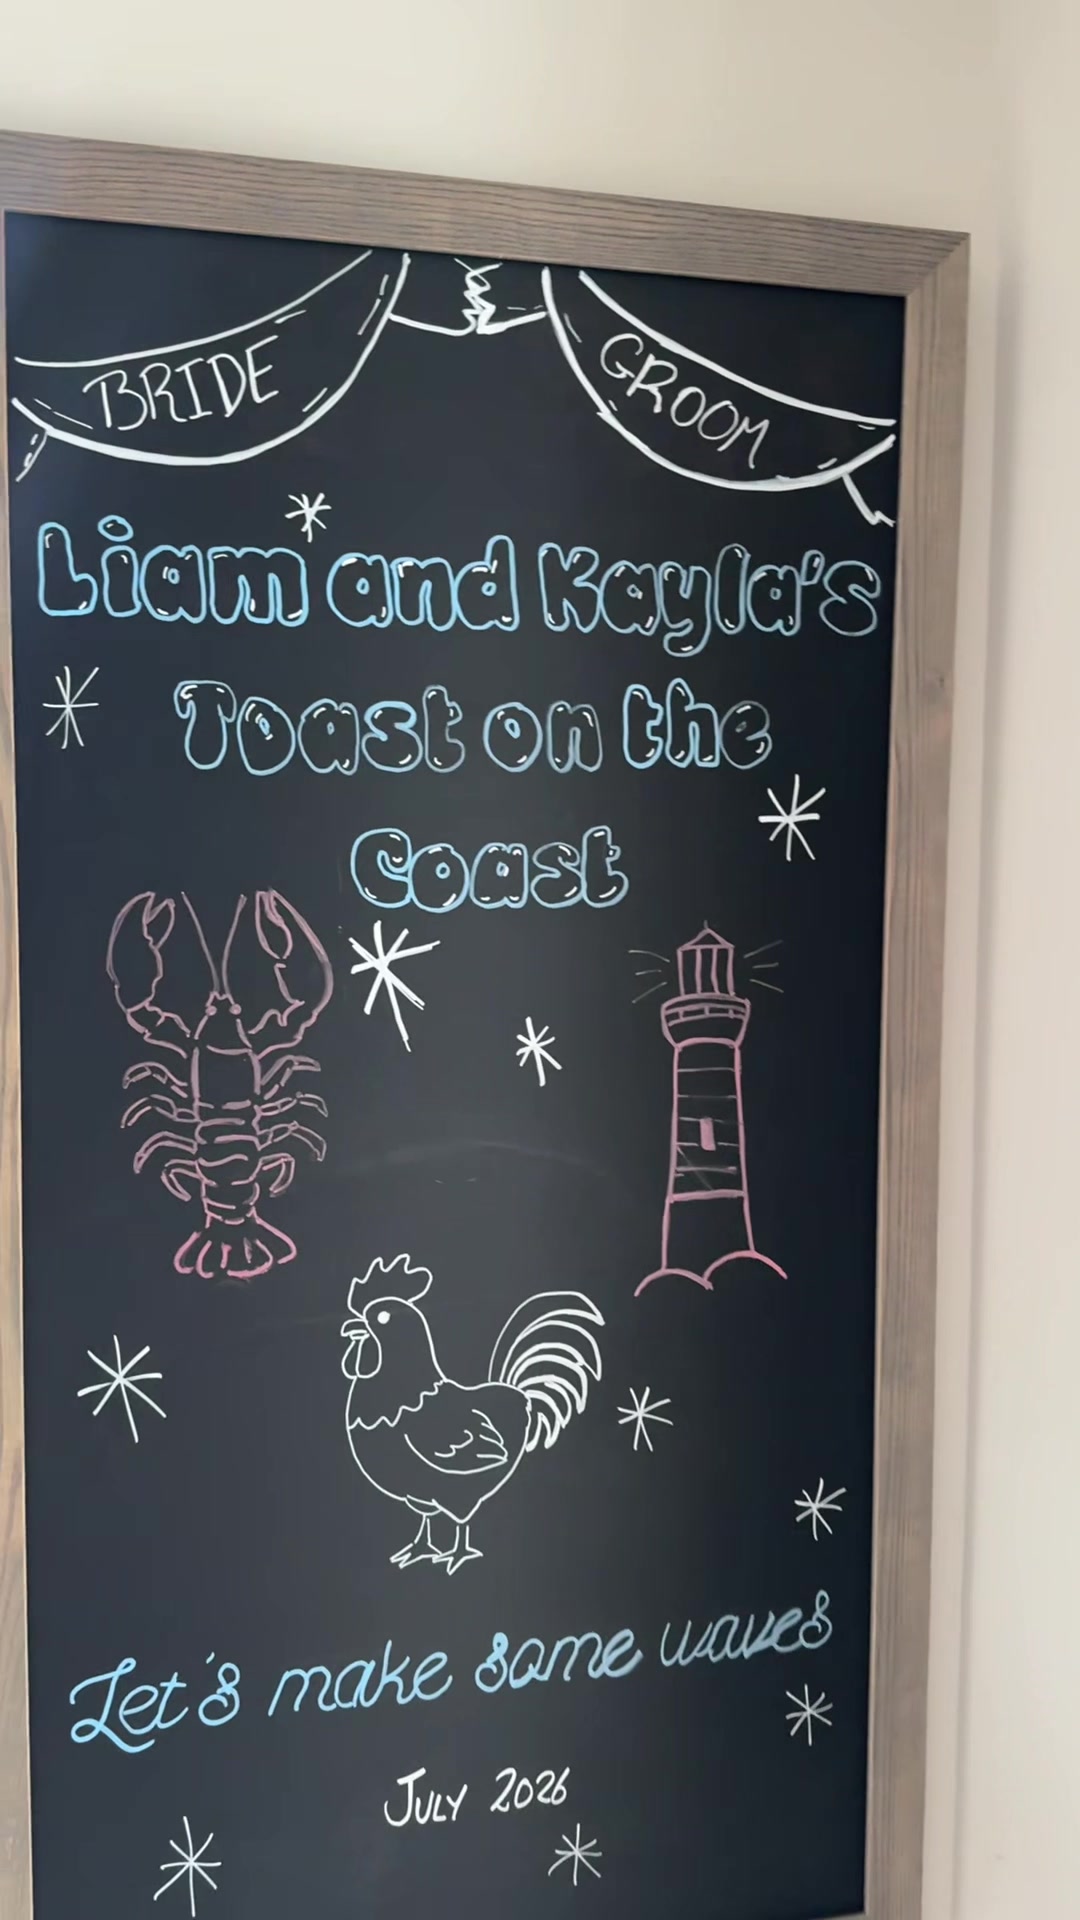 BRIDE
GROOM
Liam and Kayla's
Toast on the
Coast
Let's make some waves
JULY 2026